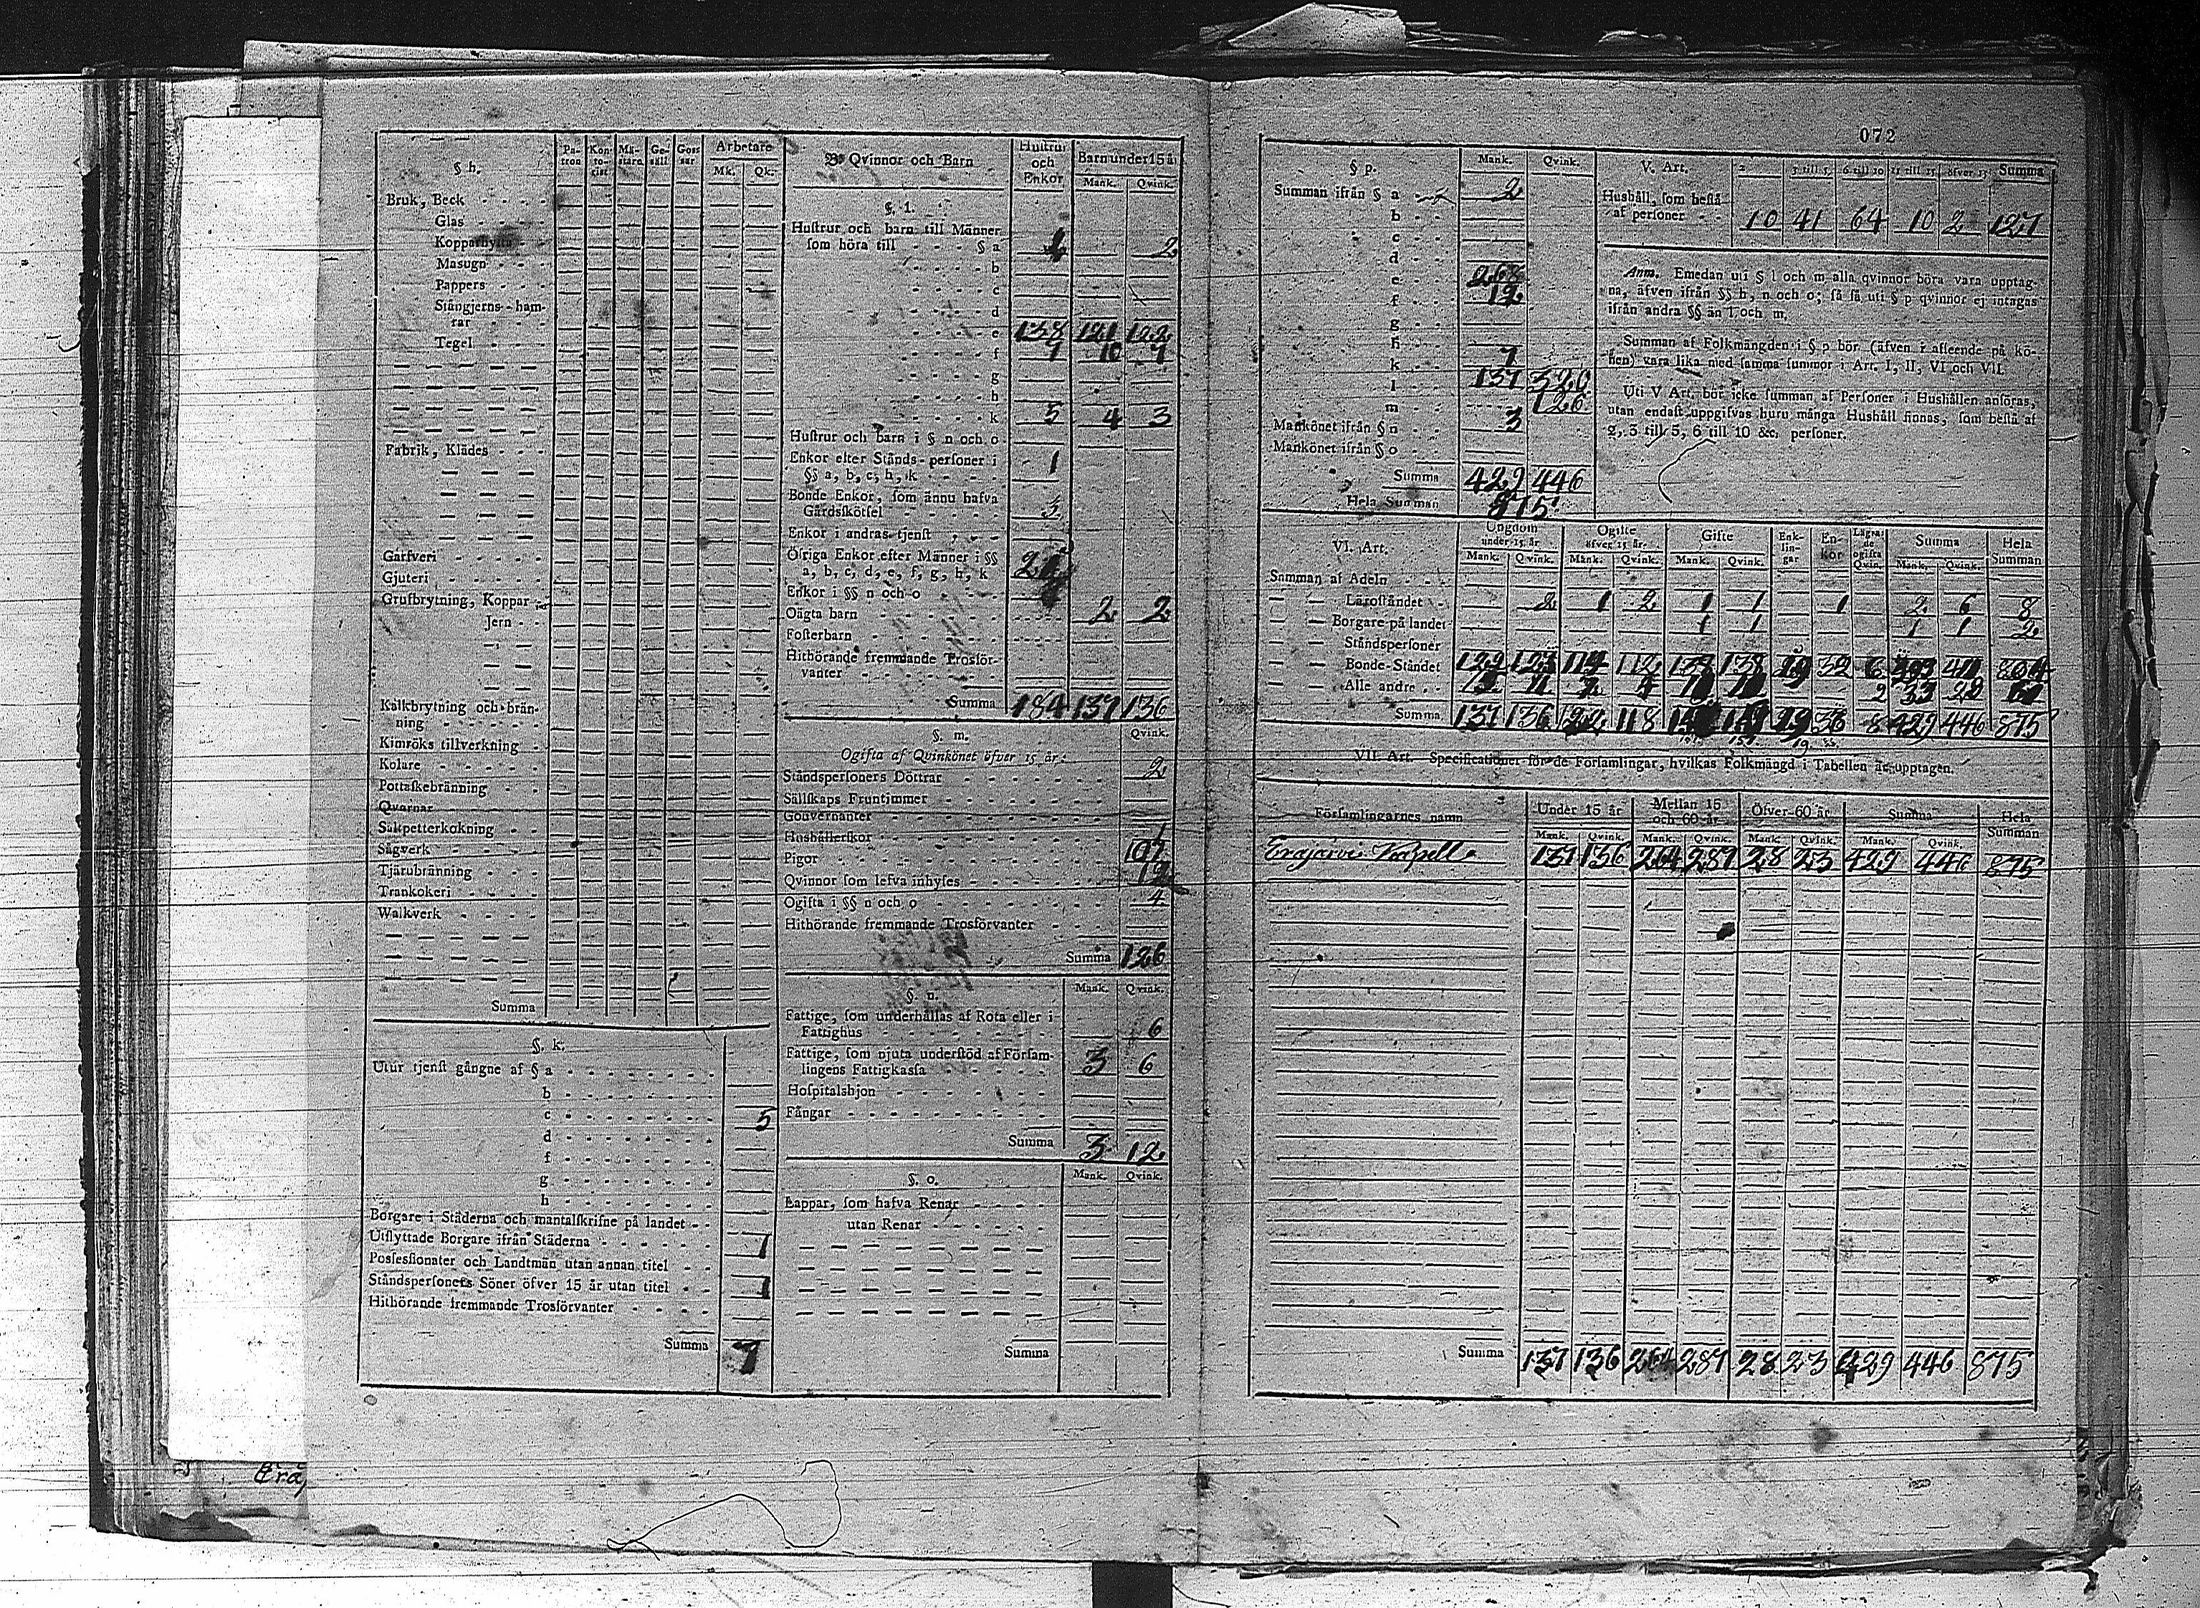 072
§ h. Patron Kontorist Mästare Gesäll Gossar Arbetare
Mk. Qk.
Bruk, Beck
Glas
Kopparhytta
Masugn
Pappers
Stångjerns-ham-
rar
Tegel
Fabrik, Klädes
Garfveri
Gjuteri
Grufbrytning, Koppar
Jern
Kalkbrytning och brän-
ning
Kimröks tillverkning
Kolare
Pottaskebränning
Qvarnar
Saltpetterkokning
Sågverk
Tjärubränning
Trankokeri
Walkverk
Summa
§. k.
Utur tjenst gångne af § a
b
c 5
d
f
g
h
Borgare i Städerna och mantalskrifne på landet
Utflyttade Borgare ifrån Städerna 1
Possessionater och Landtmän utan annan titel
Ståndspersoners Söner öfver 15 år utan titel 1
Hithörande fremmande Trosförvanter
Summa 7
B Qvinnor och Barn Hustrur och Enkor Barn under 15 år
Mank. Qvink.
§. l.
Hustrur och barn till Männer
som höra till § a 2
b
c
d
e 138 121 122
f 9 10 7
g
h
k 5 4 3
Hustrur och Barn i § n och o
Enkor efter Stånds-personer i
§§ a, b, c, h, k 1
Bonde Enkor, som ännu hafva
Gårdsskötsel 3
Enkor i andras tjenst
Öfriga Enkor efter Männer i §§
a, b, c, d, e, f, g, h, k
Enkor i §§ n och o
Oägta barn 2 2
Fosterbarn
Hithörande fremmande Trosför-
vanter
Summa 184 137 136
§. m. Qvink.
Ogifta af Qvinkönet öfver 15 år:
Ståndspersoners Döttrar 2
Sällskaps Fruntimmer
Gouvernanter
Hushållerskor 1
Pigor 107
Qvinnor som lefva inhyses 12
Ogifta i §§ n och o 4
Hithörande fremmande Trosförvanter
Summa 126
§. n. Mank. Qvink.
Fattige, som underhållas af Rota eller i
Fattighus 6
Fattige, som njuta understöd af Försam-
lingens Fattigkassa 3 6
Hospitalshjon
Fångar
Summa 3 12
§. o. Mank. Qvink.
Lappar, som hafva Renar
utan Renar
Summa
§ p. Mank. Qvink.
Summan ifrån § a 2
b
c
d
e 268
f 12
g
h
k 7
l 137 320
m 126
Mankönet ifrån § n 3
Mankönet ifrån § o
Summa 429 446
Hela Summan 875
V. Art. 2 3 till 5 6 till 10 11 till 15 öfver 15 Summa
Hushåll, som bestå
af personer 10 41 64 10 2 127
Anm. Emedan uti § l och m alla qvinnor böra vara upptag-
na, äfven ifrån §§ h, n och o; så få uti § p qvinnor ej intagas
ifrån andra §§ än l och m.
Summan af Folkmängden i § p bör (äfven i afseende på Kö-
nen) vara lika med samma summor i Art. I, II, VI och VII.
Uti V Art. bör icke summan af Personer i Hushållen anföras,
utan endast uppgifvas huru många Hushåll finnas, som bestå af
2, 3 till 5, 6 till 10 &c. personer.
VI. Art. Ungdom under 15 år Ogifte öfver 15 år Gifte Enklingar Enkor Lägrade ogifta Qvin. Summa Hela Summan
Mank. Qvink. Mank. Qvink. Mank. Qvink. Mank. Qvink.
Summan af Adeln
Läroståndet 2 1 2 1 1 1 2 6 8
Borgare på landet 1 1 1 1 2
Ståndspersoner
Bonde-Ståndet 112 138 138 32 6
Alle andre 2 33
Summa 137 136 118 8 429 446 875
VII. Art. Specificationer för de Församlingar, hvilkas Folkmängd i Tabellen är upptagen.
Församlingarnes namn Under 15 år Mellan 15 och 60 år Öfver 60 år Summa Hela Summan
Mank. Qvink. Mank. Qvink. Mank. Qvink. Mank. Qvink.
Erajärvi Kapell 137 136 264 287 28 23 429 446 875
Summa 137 136 264 287 28 23 429 446 875
Erä